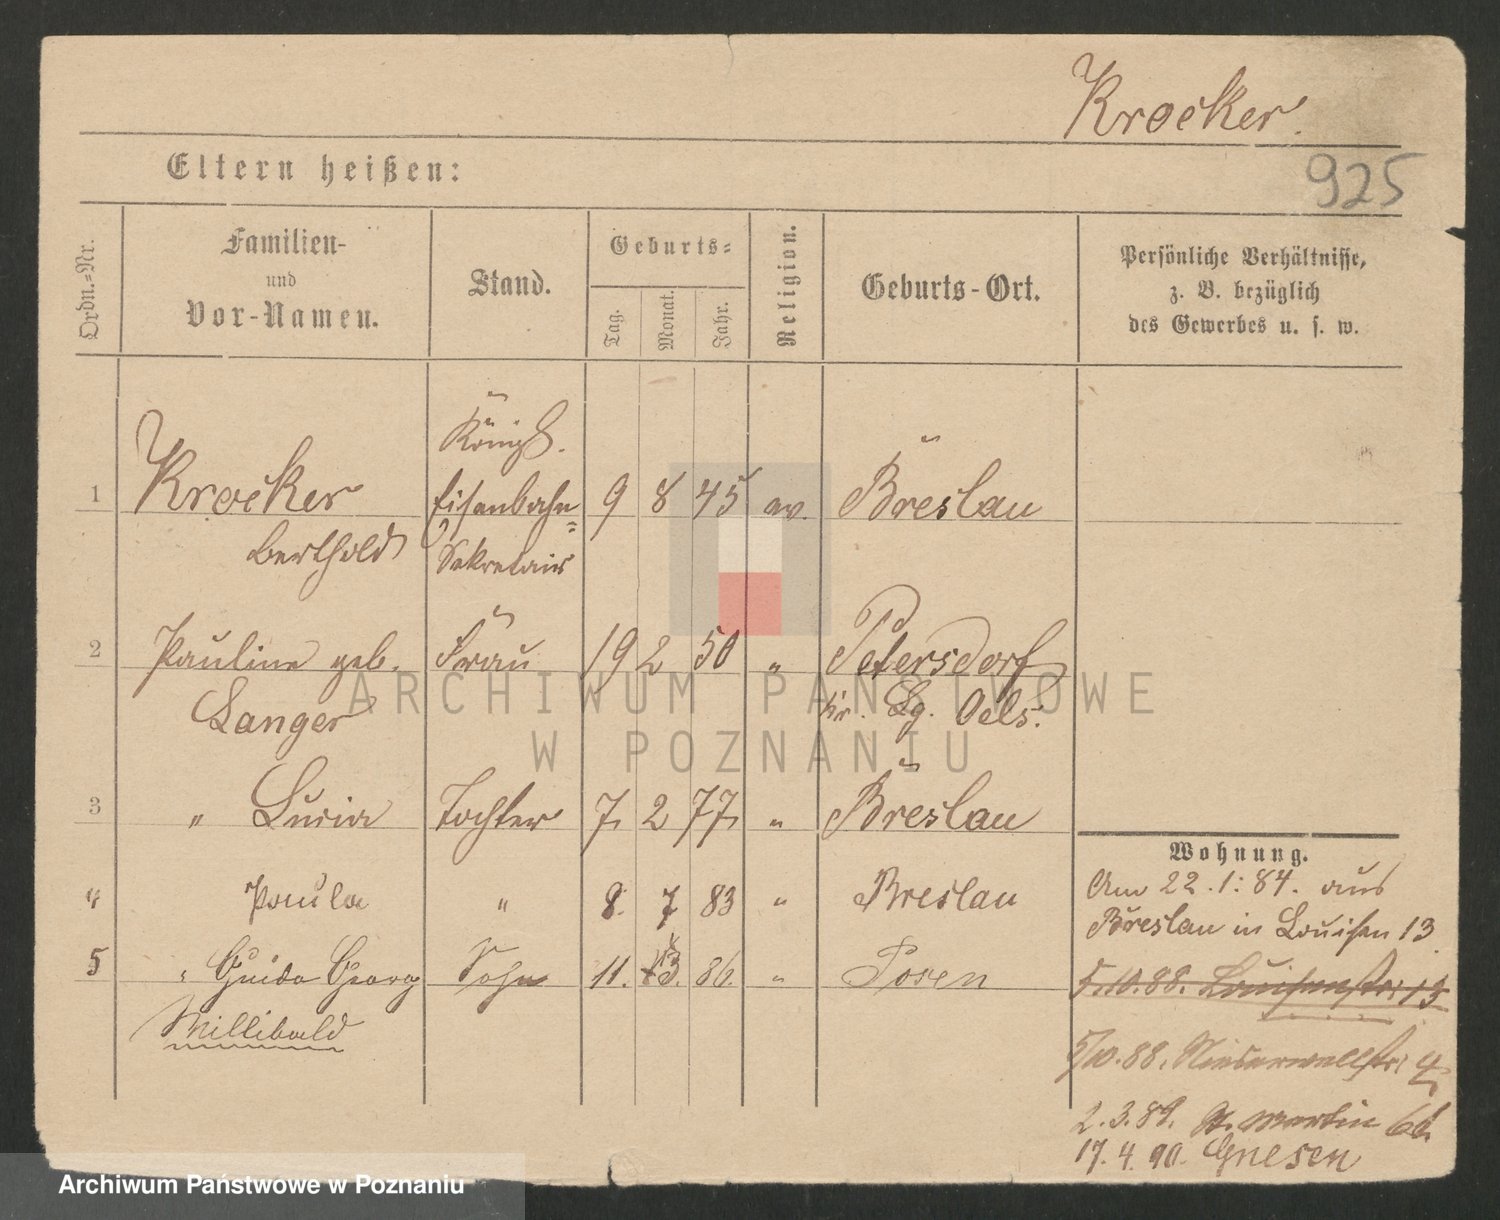 Kroeker.
Eltern heißen:
925
Ordn.=Nr.
Familien-
und
Vor-Namen.
Stand.
Geburts=
Tag.
Monat.
Jahr.
Religion.
Geburts-Ort.
Persönliche Verhältnisse,
z. B. bezüglich
des Gewerbes u. s. w.
Königl.
1 Kroeker Eisenbahn= 9 8 45 ev. Breslau
Berthold Sekretair
2 Pauline geb. Frau 19 2 50 " Petersdorf
Langer Kr. Lg. Oels.
3 " Lucia Tochter 7. 2 77. " Breslau
Wohnung.
4 Paula " 8. 7 83 " Breslau
Am 22.1.84. aus
Breslau in Louisen 13
5 " Guido Georg Sohn 11. 3. 86. " Posen
Willibald
5.10.88. Louisenstr. 13
5/10.88. Niederwallstr. 4
2.3.89. St. Martin
17.4.90. Gnesen
ARCHIWUM PAŃSTWOWE
W POZNANIU
Archiwum Państwowe w Poznaniu